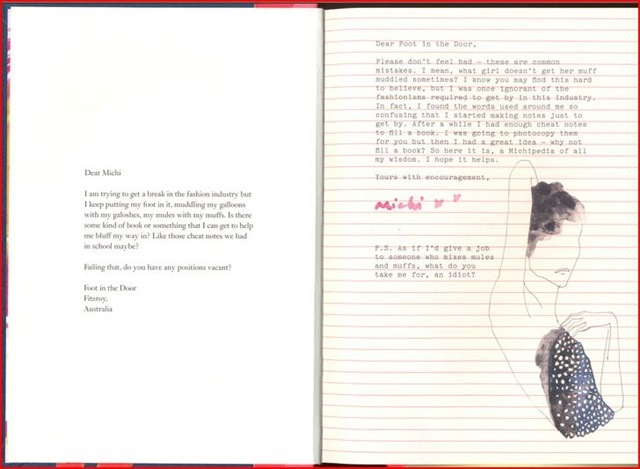 Dear Michi
I am trying to get a break in the fashion industry but
I keep putting my foot in it, muddling my galloons
with my galoshes, my mules with my muffs. Is there
some kind of book or something that I can get to help
me bluff my way in? Like those cheat notes we had
in school maybe?
Failing that, do you have any positions vacant?
Foot in the Door
Fitzroy,
Australia
Dear Foot in the Door,
Please don't feel bad — these are common
mistakes. I mean, what girl doesn't get her muff
muddled sometimes? I know you may find this hard
to believe, but I was once ignorant of the
fashionisms required to get by in this industry.
In fact, I found the words used around me so
confusing that I started making notes just to
get by. After a while I had enough cheat notes
to fill a book. I was going to photocopy them
for you but then I had a great idea — why not
fill a book? So here it is, a Michipedia of all
my wisdom. I hope it helps.
Yours with encouragement,
Michi
P.S. As if I'd give a job
to someone who mixes mules
and muffs, what do you
take me for, an idiot?